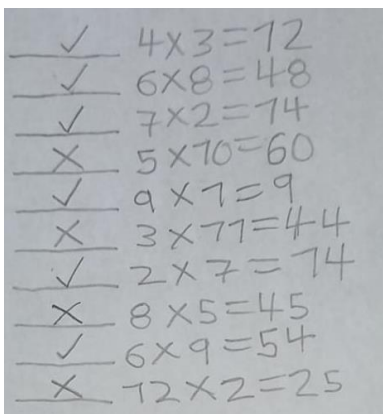 ✓ 4×3=12
✓ 6×8=48
✓ 7×2=14
✗ 5×10=60
✓ 9×1=9
✗ 3×11=44
✓ 2×7=14
✗ 8×5=45
✓ 6×9=54
✗ 12×2=25